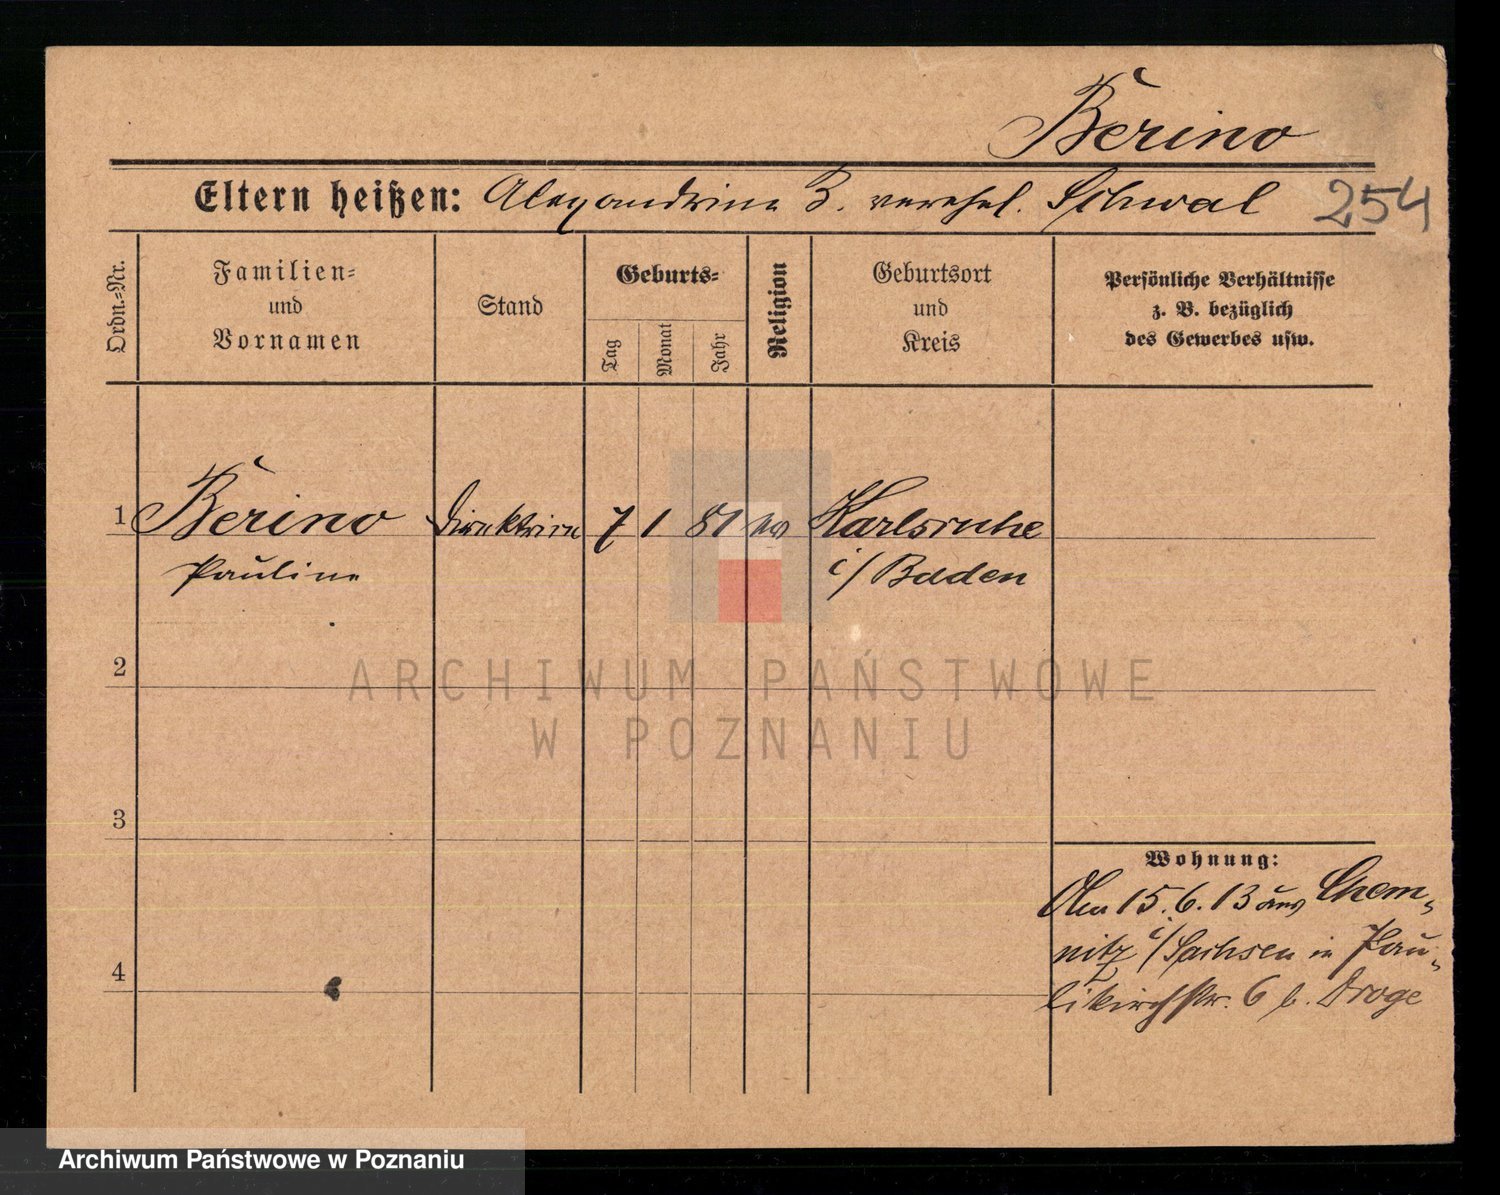 Berino
Eltern heißen: Alexandrine B. verehel. Schwal 254
Ordn.=Nr.
Familien=
und
Vornamen
Stand
Geburts=
Tag
Monat
Jahr
Religion
Geburtsort
und
Kreis
Persönliche Verhältnisse
z. B. bezüglich
des Gewerbes usw.
1 Berino Direktrice 7 1 81 ev Karlsruhe
Pauline i/ Baden
2
ARCHIWUM PAŃSTWOWE
W POZNANIU
3
Wohnung:
Am 15.6.13 aus Chem-
nitz i/Sachsen in Pau-
4
likirchstr. 6 b. Droge
Archiwum Państwowe w Poznaniu